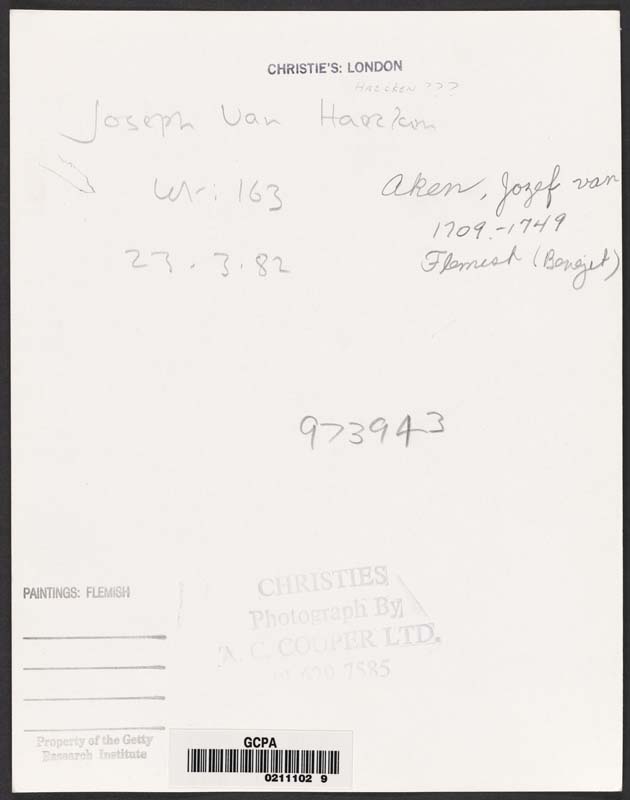 CHRISTIE'S: LONDON
HAECKEN ???
Joseph Van Haecken
163
Aken, Jozef van
1709.-1749
23.3.82
Flemish (Benezit)
973943
PAINTINGS: FLEMISH
CHRISTIES
Photograph By
A. C. COOPER LTD.
01 629 7585
Property of the Getty
Research Institute
GCPA
0211102 9